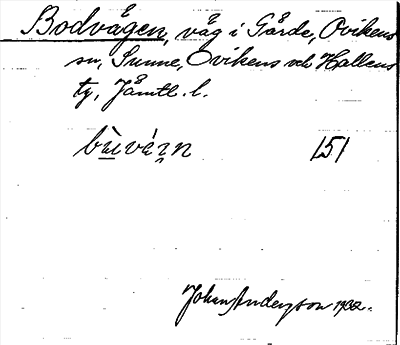 Bodvägen, väg i Gärde, Ovikens
sn, Sunne, Ovikens och Hallens
tg, Jämtl. l.
bùvé̖n 151
Johan Anderson 1932.